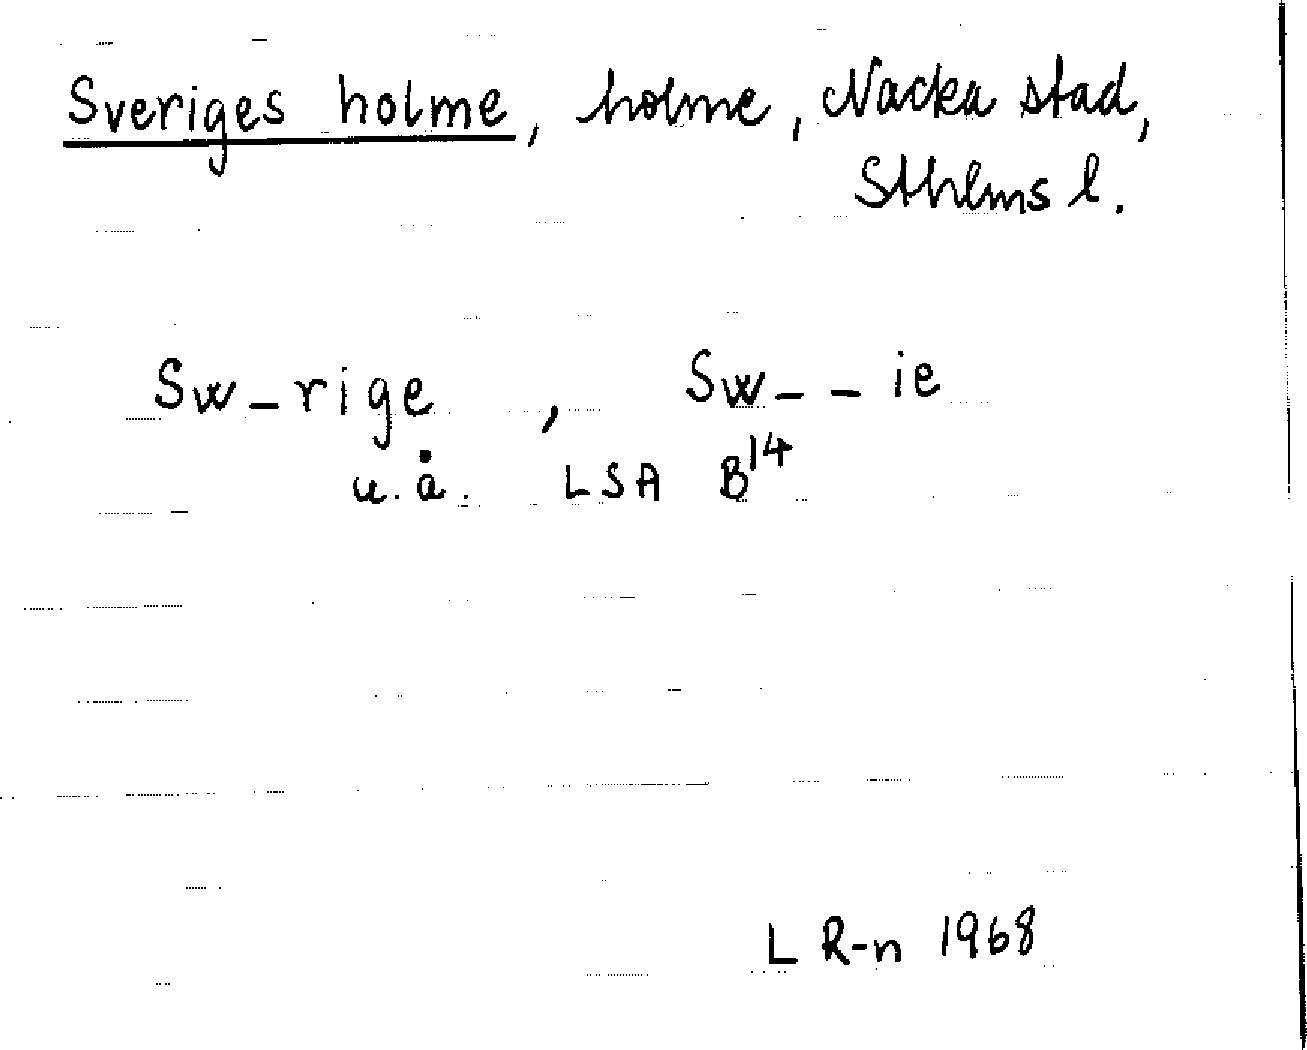 Sveriges holme, holme, Nacka stad,
Sthlms l.
Sw_rige , Sw_ _ ie
u. å. LSA B14
L R-n 1968